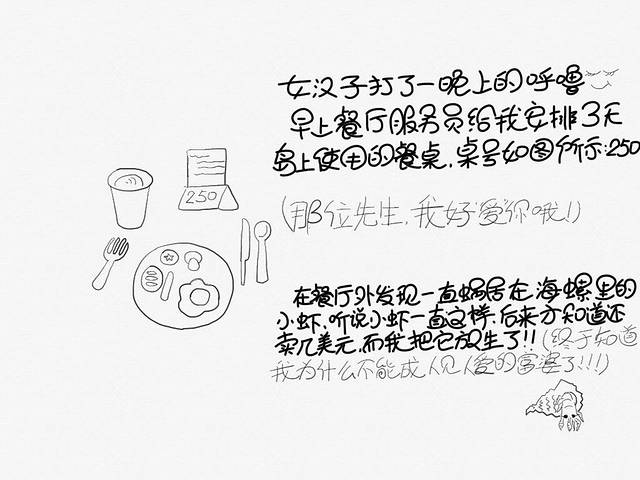 女汉子打了一晚上的呼噜
早上餐厅服务员给我安排了3天
岛上使用的餐桌,桌号如图所示:250
250
(那位先生,我好爱你哦!)
在餐厅外发现一直蜗居在海螺里的
小虾,听说小虾一直这样,后来才知道还
卖几美元,而我把它放生了!!(终于知道
我为什么不能成人见人爱的富婆了!!!)